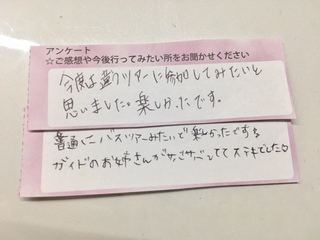 アンケート
☆ご感想や今後行ってみたい所をお聞かせください
今度は違うツアーに参加してみたいと
思いました。楽しかったです。
普通にバスツアーみたいで楽しかったです!
ガイドのお姉さんがサバサバしててステキでした♡